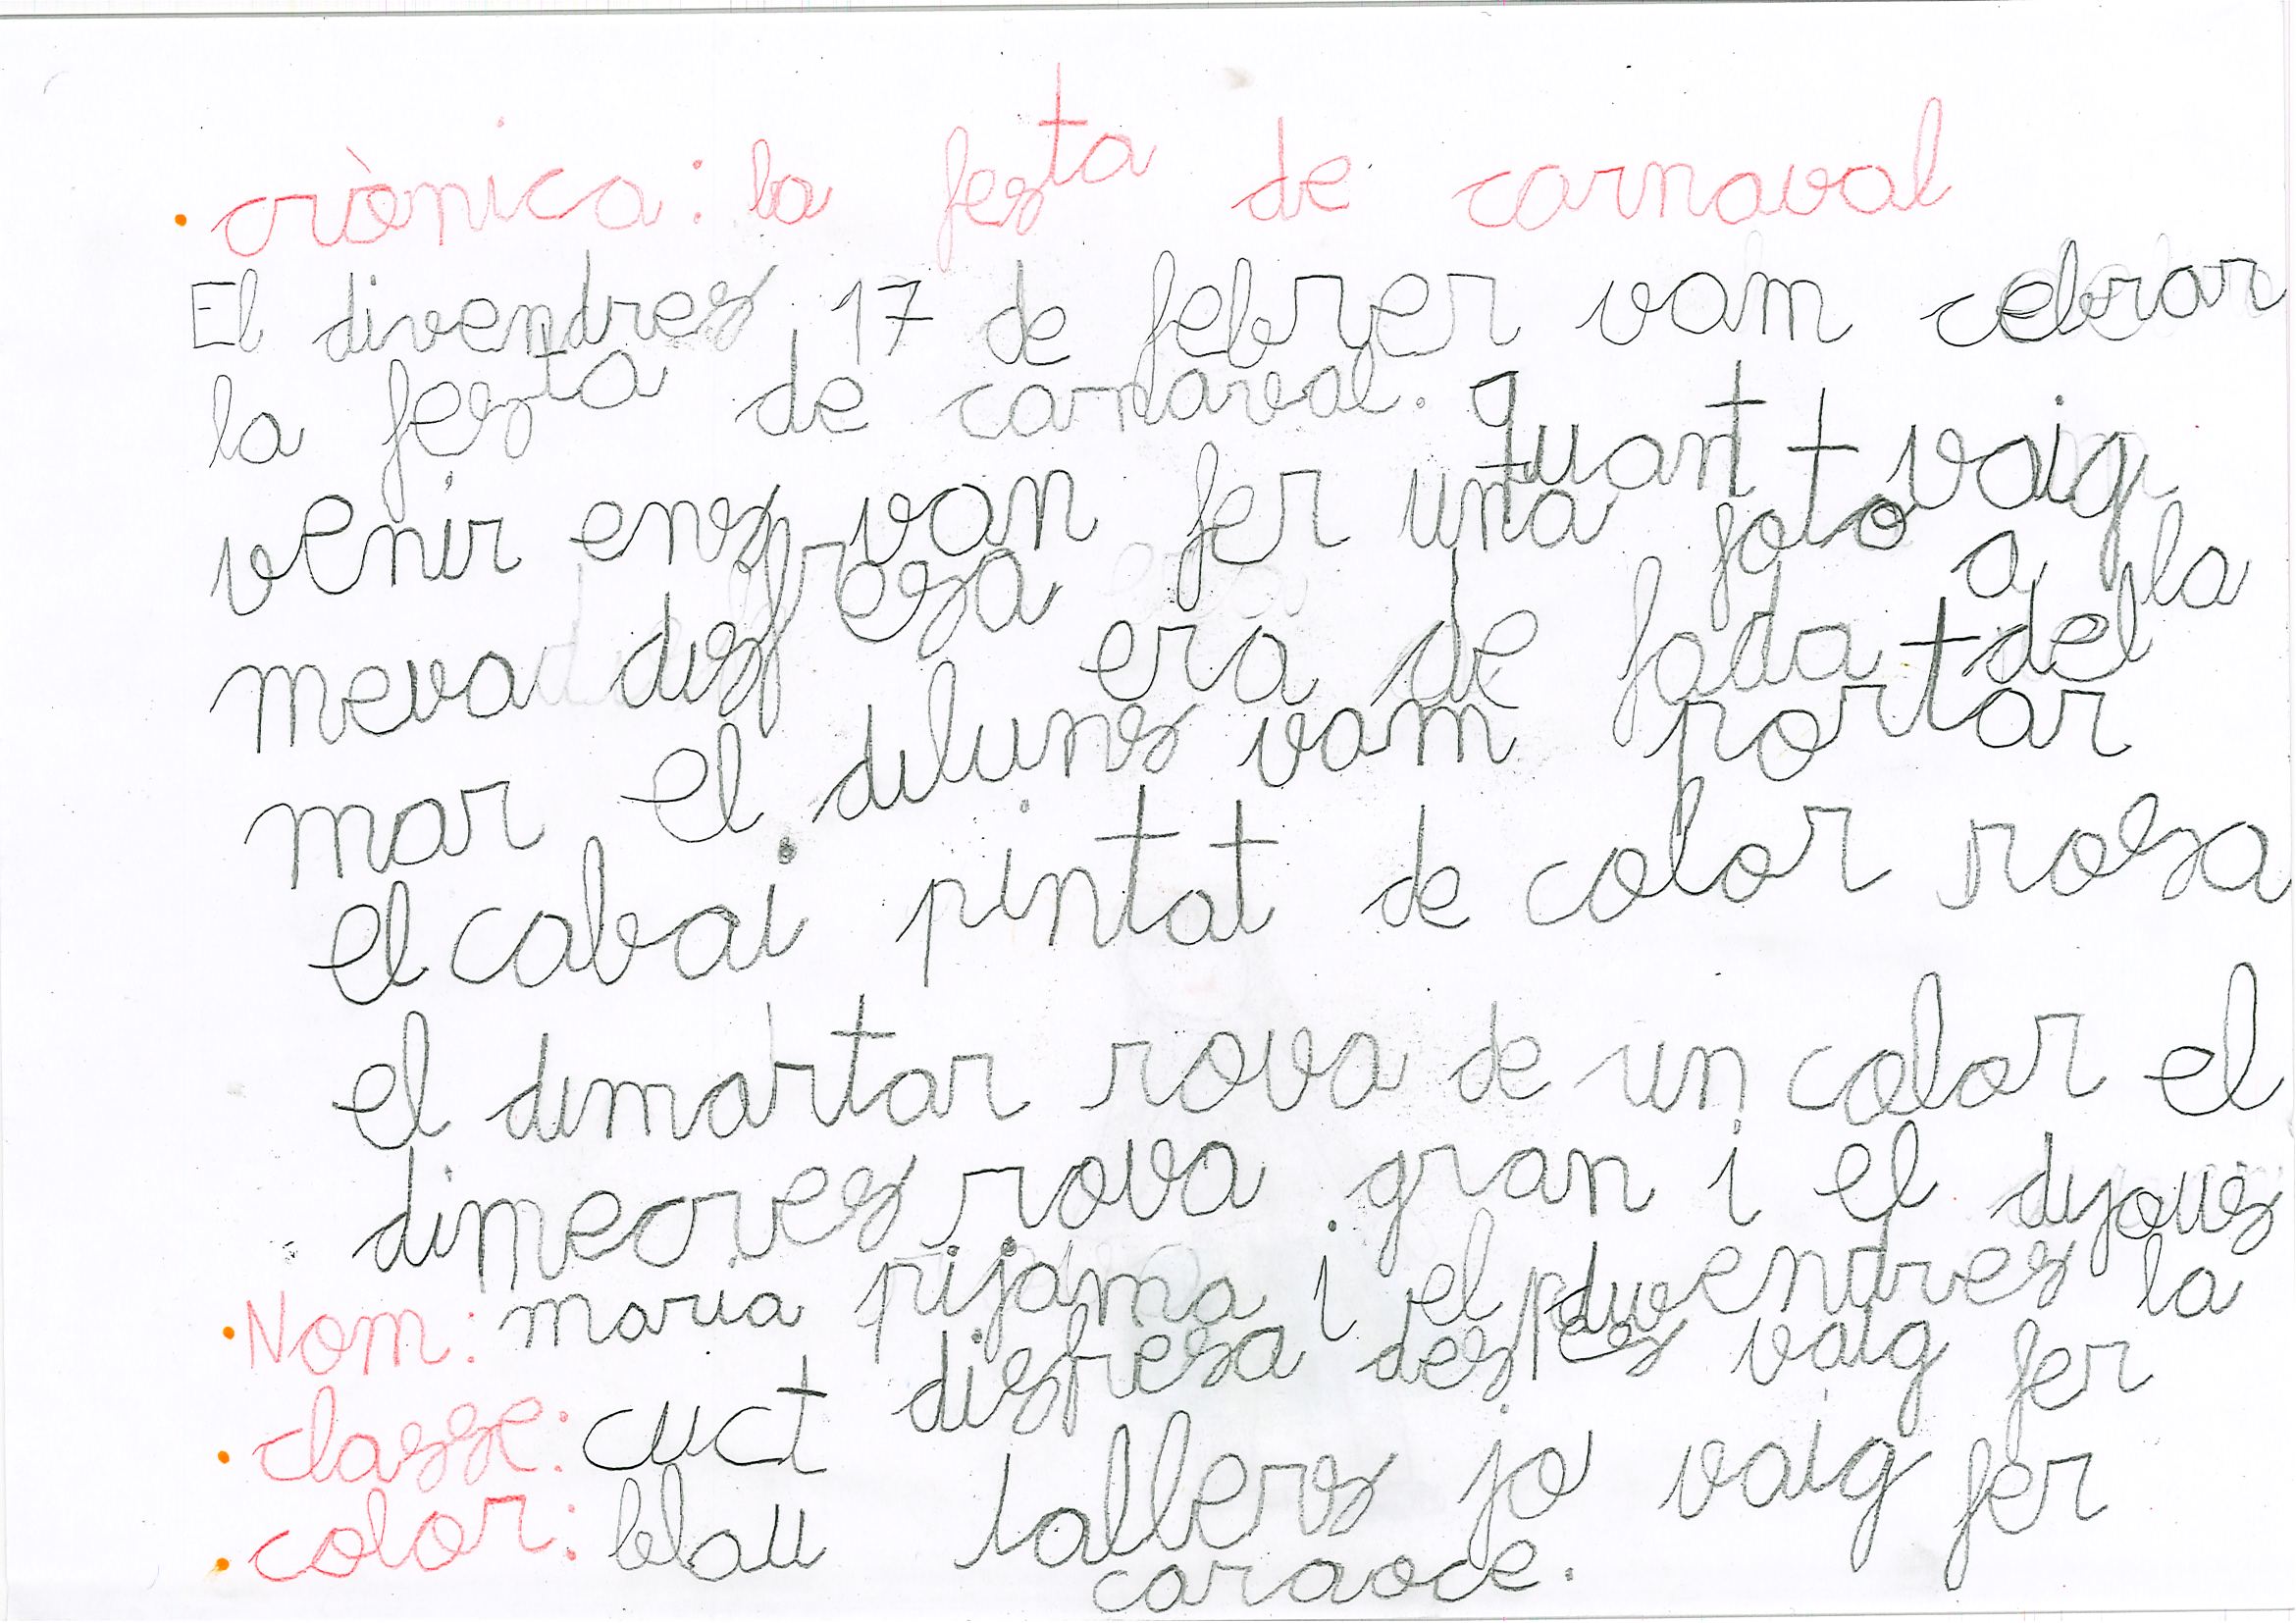 crònica: la festa de carnaval
El divendres 17 de febrer vam celebrar
la festa de carnaval. quant vaig
venir ens van fer una foto a la
meva disfresa era de fada del
mar el diluns vam portar
el cabai pintat de color rosa
el dimartar rova de un color el
dimecres rova gran i el dijous
pijama i el divendres la
disfresa despes vaig fer
tallers jo vaig fer
caraoce.
Nom: maria
classe: cuct
color: blau